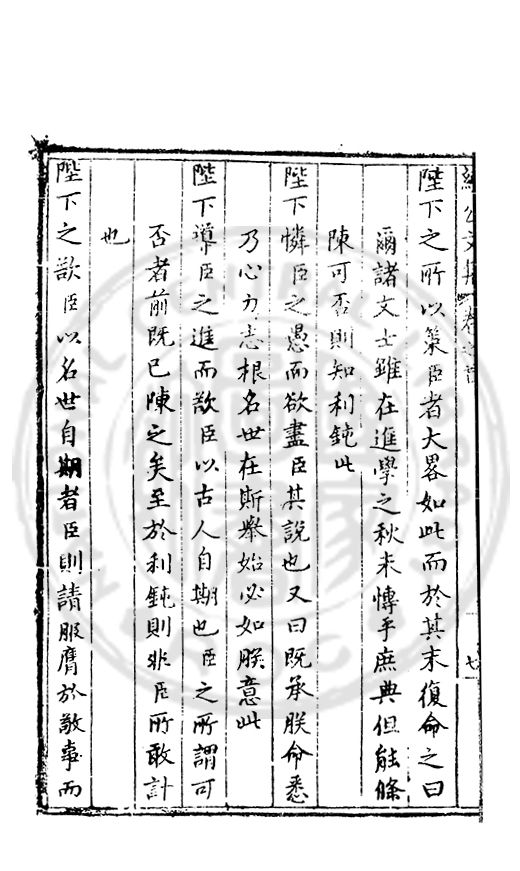 公文集卷之首
七
陛下之所以策臣者大畧如此而於其末復命之曰
爾諸文士雖在進學之秋未愽乎庶典但能條
陳可否則知利鈍此
陛下憐臣之愚而欲盡臣其說也又曰既承朕命悉
乃心力志根名世在斯舉始必如朕意此
陛下導臣之進而歆臣以古人自期也臣之所謂可
否者前既已陳之矣至於利鈍則非臣所敢計
也
陛下之歆臣以名世自期者臣則請服膺於敬事而